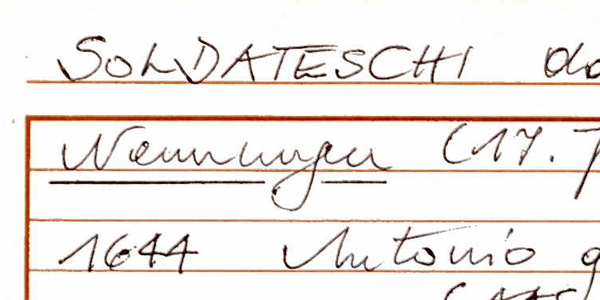 SOLDATESCHI
Nennungen (17.
1644 Antonio